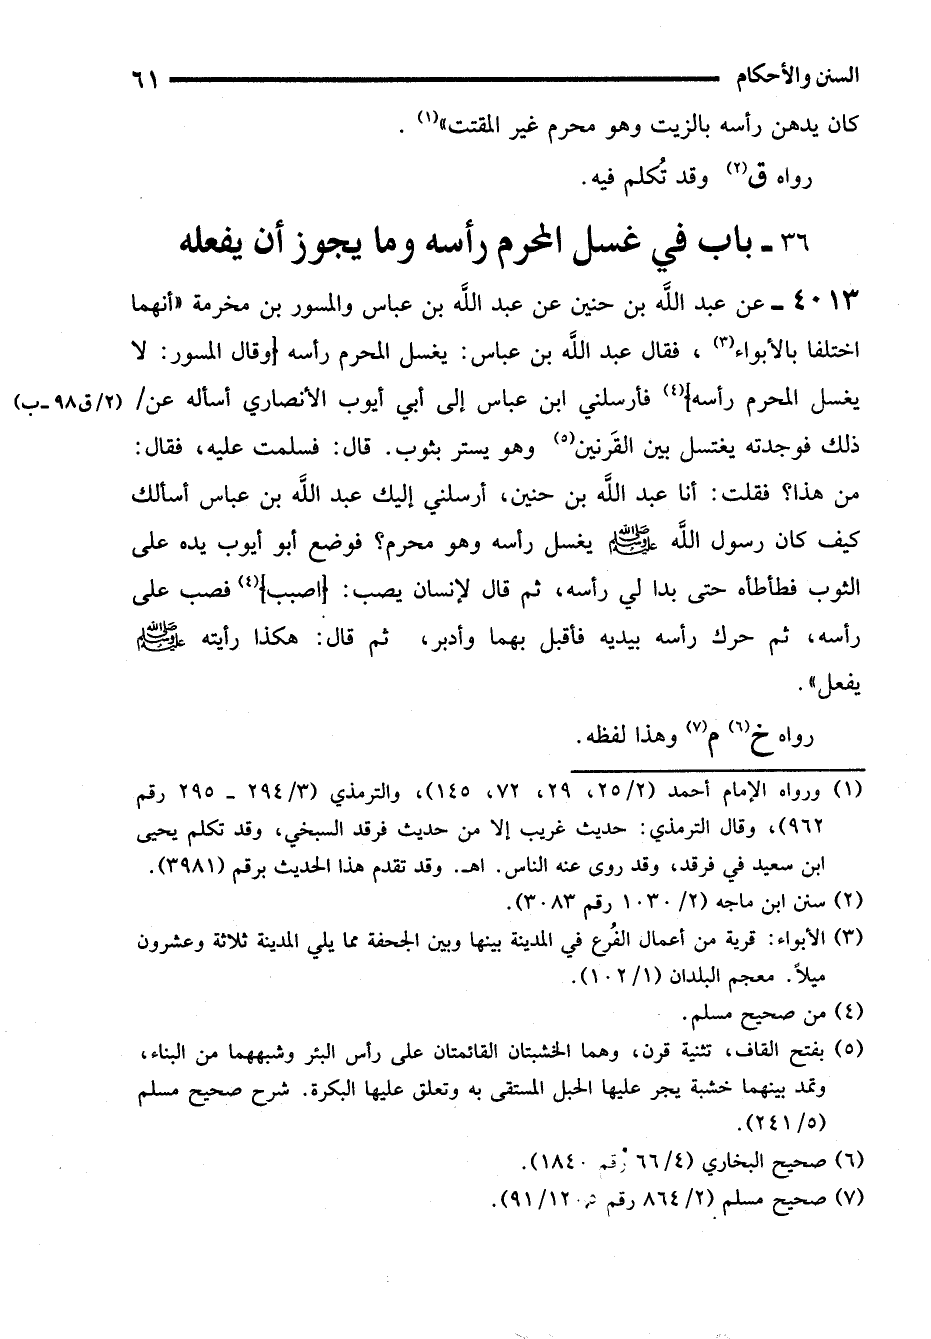 السنن والأحكام ٦١
كان يدهن رأسه بالزيت وهو محرم غير المقتت»(١) .
رواه ق(٢) وقد تُكلم فيه.
٣٦ ـ باب في غسل المحرم رأسه وما يجوز أن يفعله
٤٠١٣ ـ عن عبد اللَّه بن حنين عن عبد اللَّه بن عباس والمسور بن مخرمة «أنهما
اختلفا بالأبواء(٣) ، فقال عبد اللَّه بن عباس: يغسل المحرم رأسه {وقال المسور: لا
يغسل المحرم رأسه}(٤) فأرسلني ابن عباس إلى أبي أيوب الأنصاري أسأله عن/ (٢/ق٩٨-ب)
ذلك فوجدته يغتسل بين القَرنين(٥) وهو يستر بثوب. قال: فسلمت عليه، فقال:
من هذا؟ فقلت: أنا عبد اللَّه بن حنين، أرسلني إليك عبد اللَّه بن عباس أسألك
كيف كان رسول اللَّه ﷺ يغسل رأسه وهو محرم؟ فوضع أبو أيوب يده على
الثوب فطأطأه حتى بدا لي رأسه، ثم قال لإنسان يصب: {اصبب}(٤) فصب على
رأسه، ثم حرك رأسه بيديه فأقبل بهما وأدبر، ثم قال: هكذا رأيته ﷺ
يفعل» .
رواه خ(٦) م(٧) وهذا لفظه.
(١) ورواه الإمام أحمد (٢/ ٢٥، ٢٩، ٧٢، ١٤٥)، والترمذي (٣/ ٢٩٤ ـ ٢٩٥ رقم
٩٦٢)، وقال الترمذي: حديث غريب إلا من حديث فرقد السبخي، وقد تكلم يحيى
ابن سعيد في فرقد، وقد روى عنه الناس. اهـ. وقد تقدم هذا الحديث برقم (٣٩٨١).
(٢) سنن ابن ماجه (٢/ ١٠٣٠ رقم ٣٠٨٣).
(٣) الأبواء: قرية من أعمال الفُرع في المدينة بينها وبين الجحفة مما يلي المدينة ثلاثة وعشرون
ميلاً. معجم البلدان (١/ ١٠٢).
(٤) من صحيح مسلم.
(٥) بفتح القاف، تثنية قرن، وهما الخشبتان القائمتان على رأس البئر وشبههما من البناء،
وتمد بينهما خشبة يجر عليها الحبل المستقى به وتعلق عليها البكرة. شرح صحيح مسلم
(٥/ ٢٤١).
(٦) صحيح البخاري (٤/ ٦٦ رقم ١٨٤٠).
(٧) صحيح مسلم (٢/ ٨٦٤ رقم ١٢٠٥/ ٩١).